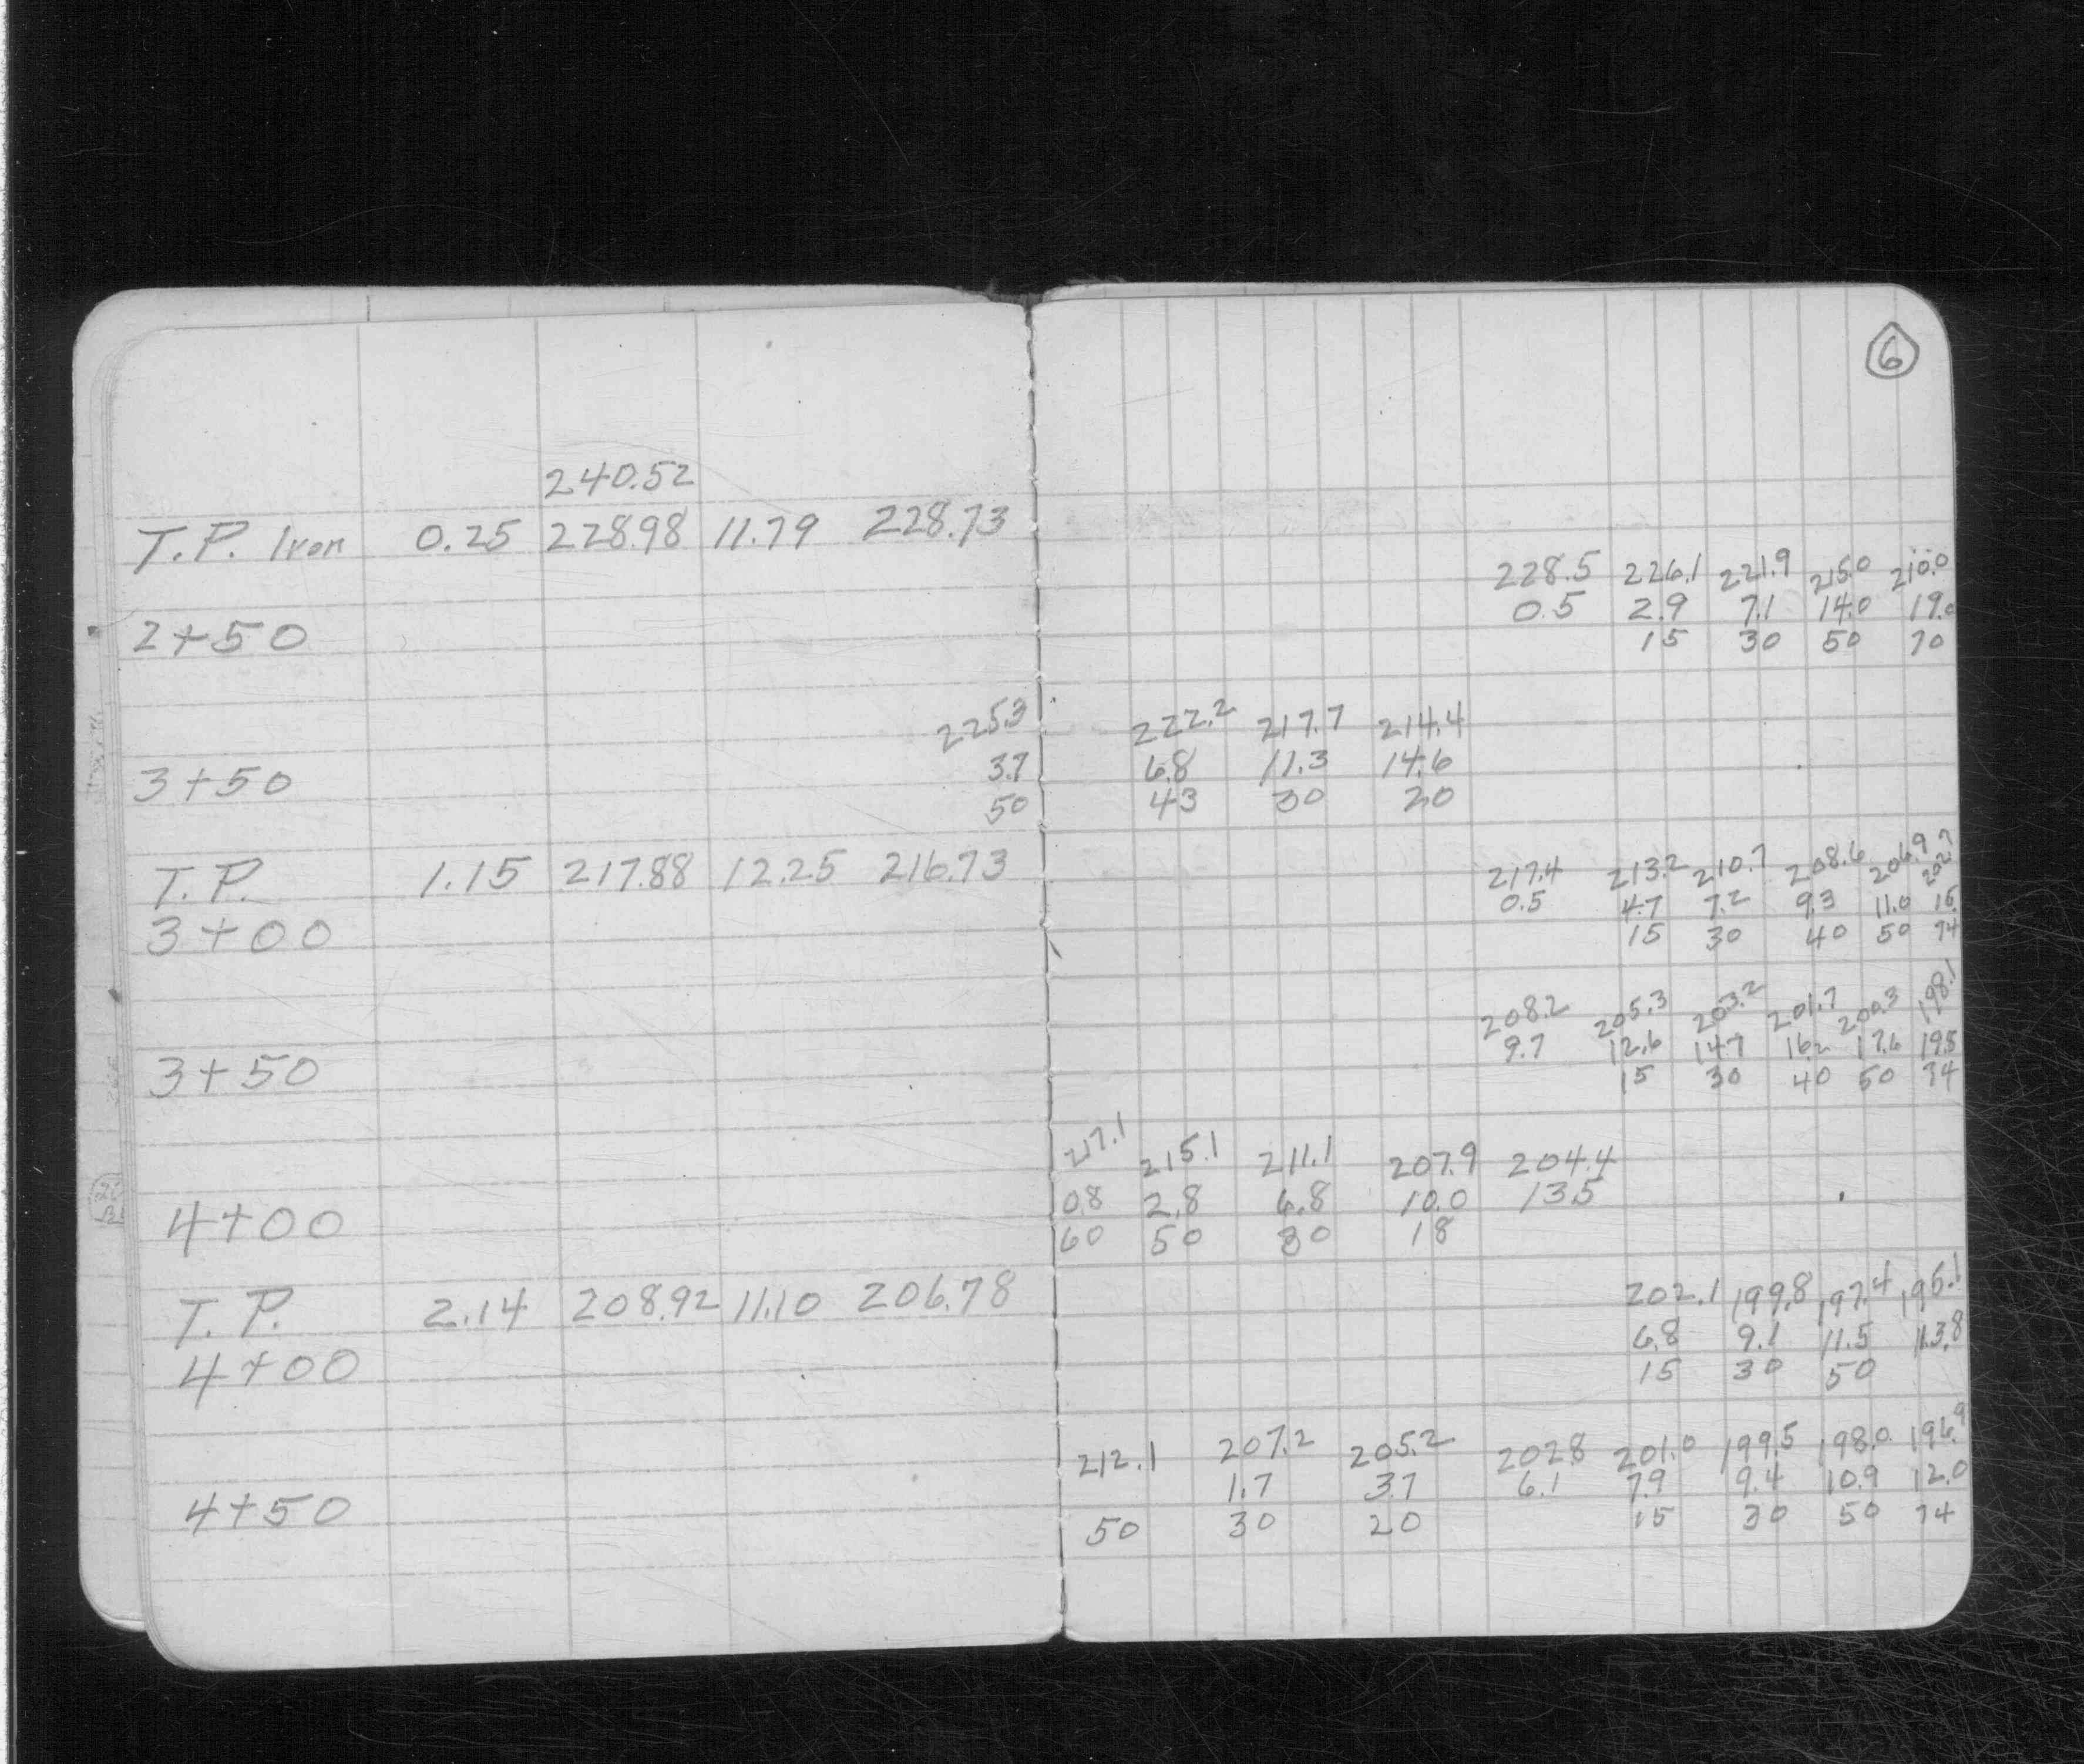 6
240.52
T.P. Iron 0.25 228.98 11.79 228.73
228.5 226.1 221.9 215.0 210.0
0.5 2.9 7.1 14.0 19.0
2+50 15 30 50 70
225.3 222.2 217.7 214.4
3+50 3.7 6.8 11.3 14.6
50 43 30 20
T.P. 1.15 217.88 12.25 216.73
217.4 213.2 210.7 208.6 206.9 202.7
0.5 4.7 7.2 9.3 11.0 15.
3+00 15 30 40 50 74
208.2 205.3 203.2 201.7 200.3 198.1
9.7 12.6 14.7 16.2 17.6 19.5
3+50 15 30 40 50 74
217.1 215.1 211.1 207.9 204.4
0.8 2.8 6.8 10.0 13.5
4+00 60 50 30 18
T.P. 2.14 208.92 11.10 206.78
202.1 199.8 197.4 195.1
6.8 9.1 11.5 13.8
4+00 15 30 50
212.1 207.2 205.2 202.8 201.0 199.5 198.0 196.9
1.7 3.7 6.1 7.9 9.4 10.9 12.0
4+50 50 30 20 15 30 50 74